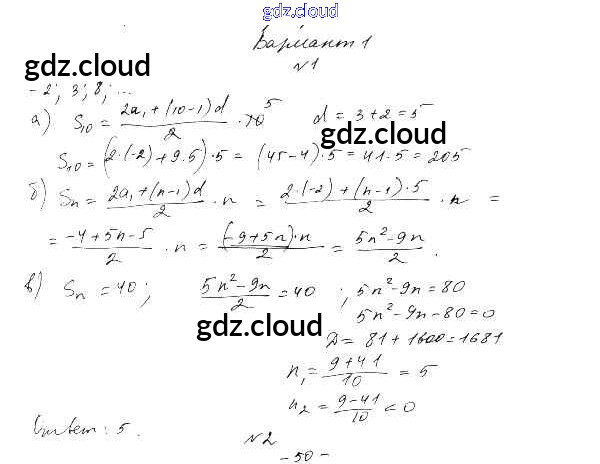 gdz.cloud
Вариант 1
N1
gdz.cloud
-2; 3; 8; ...
а) S₁₀ = (2a₁ + (10-1)d)/2 · 10 5 d = 3+2 = 5
gdz.cloud
S₁₀ = (2·(-2) + 9·5)·5 = (45-4)·5 = 41·5 = 205
б) Sₙ = (2a₁ + (n-1)d)/2 · n = (2·(-2) + (n-1)·5)/2 · n =
= (-4+5n-5)/2 · n = ((-9+5n)·n)/2 = (5n²-9n)/2 .
в) Sₙ = 40; (5n²-9n)/2 = 40 ; 5n²-9n = 80
gdz.cloud
5n²-9n-80=0
D = 81 + 1600 = 1681
n₁ = (9+41)/10 = 5
n₂ = (9-41)/10 < 0
Ответ: 5.
N2
- 50 -